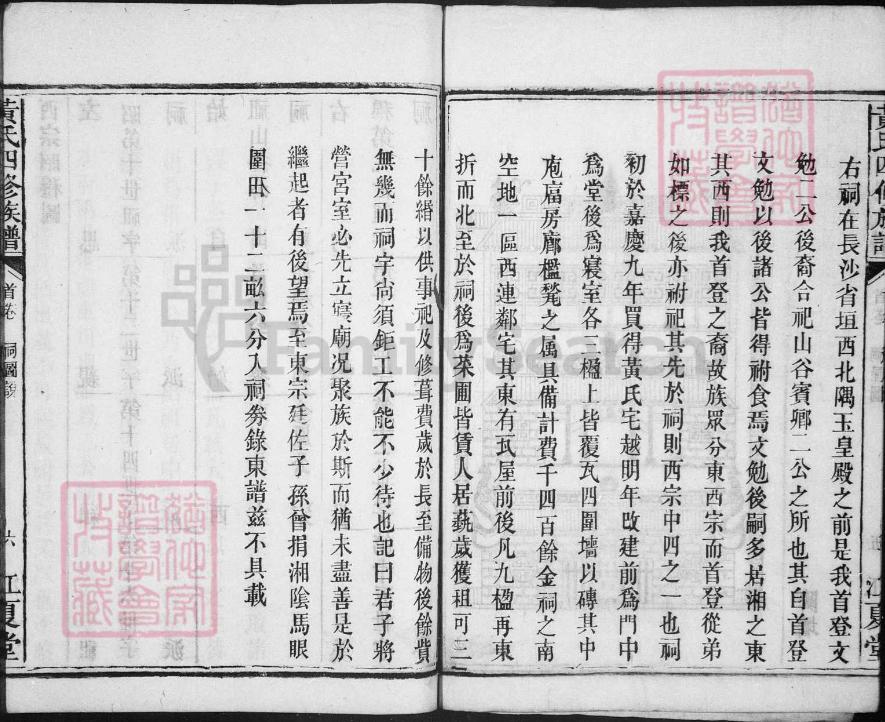 右祠在長沙省垣西北隅玉皇殿之前是我首登文
勉二公後裔合祀山谷賓卿二公之所也其自首登
文勉以後諸公皆得祔食焉文勉後嗣多居湘之東
其西則我首登之裔故族眾分東西宗而首登從弟
如標之後亦祔祀其先於祠則西宗中四之一也祠
初於嘉慶九年買得黃氏宅越明年改建前爲門中
爲堂後爲寢室各三楹上皆覆瓦四圍墻以磚其中
庖湢房廊櫺甃之属具備計費千四百餘金祠之南
空地一區西連鄰宅其東有瓦屋前後凡九楹再東
折而北至於祠後爲菜圃皆賃人居蓺歲獲租可三
十餘緡以供事祀及修葺費歲於長至備物後餘貲
無幾而祠宇尙須鉅工不能不少待也記曰君子將
營宮室必先立寢廟况聚族於斯而猶未盡善是於
繼起者有後望焉至東宗廷佐子孫曾捐湘陰馬眼
圍田一十二畝六分入祠劵錄東譜兹不具載
黃氏四修族譜
首卷
祠圖說
六
江夏堂
FamilySearch